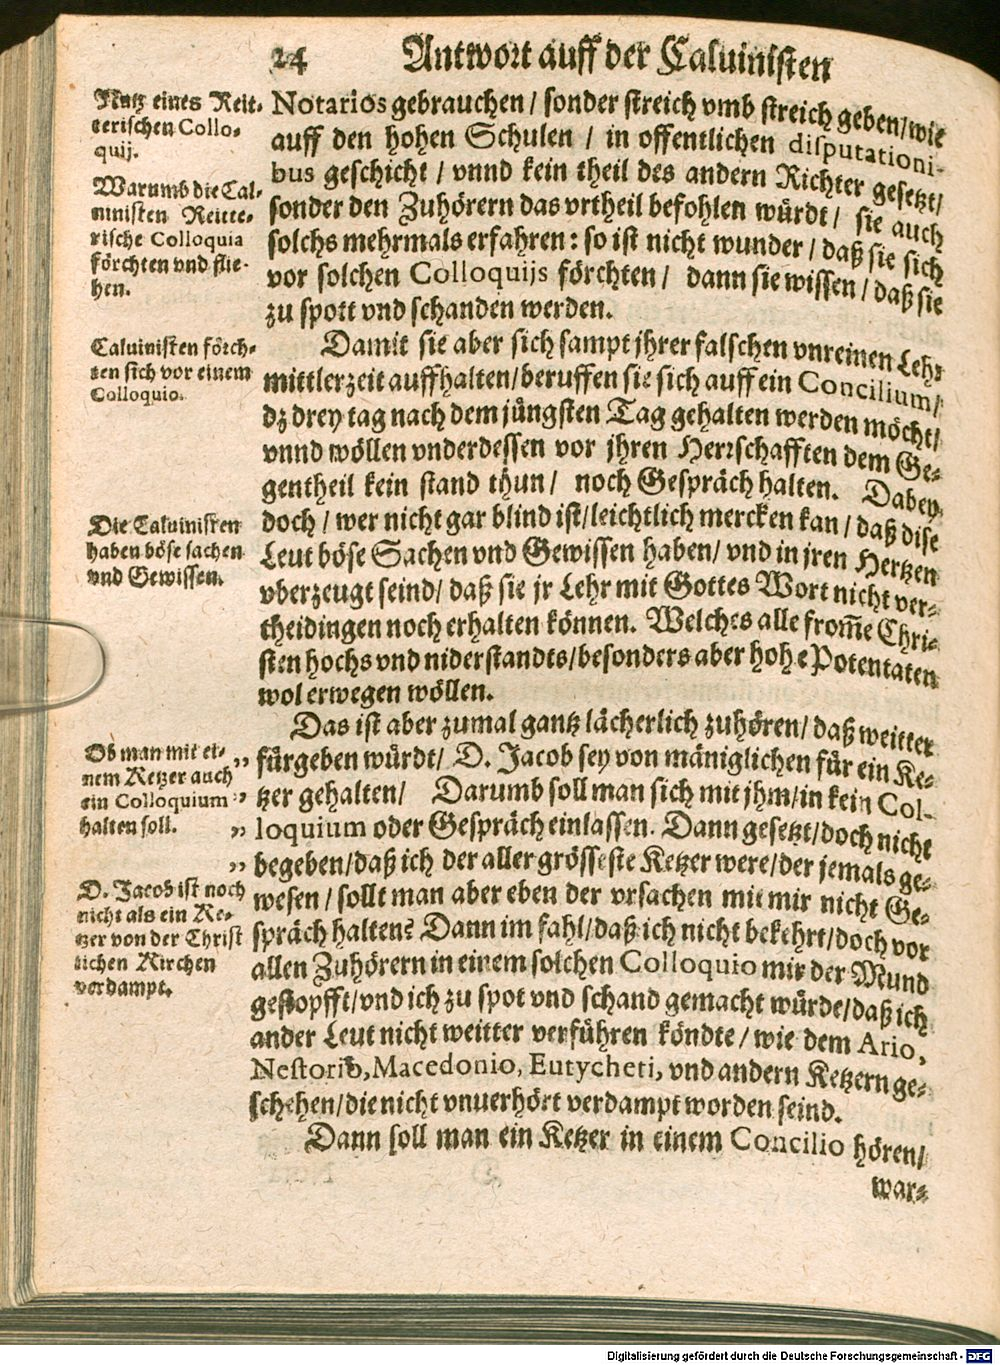 24 Antwort auff der Caluinisten
Nutz eines Reit-
terischen Collo-
quij.
Warumb die Cal-
uinisten Reitte-
rische Colloquia
förchten vnd flie-
hen.
Caluinisten förch-
ten sich vor einem
Colloquio.
Die Caluinisten
haben böse sachen
vnd Gewissen.
Ob man mit ei-
nem Ketzer auch
ein Colloquium
halten soll.
D. Jacob ist noch
nicht als ein Ke-
tzer von der Christ
lichen Kirchen
verdampt.
Notarios gebrauchen / sonder streich vmb streich geben/wie
auff den hohen Schulen / in offentlichen disputationi-
bus geschicht / vnnd kein theil des andern Richter gesetzt/
sonder den Zuhörern das vrtheil befohlen würdt / sie auch
solchs mehrmals erfahren: so ist nicht wunder / daß sie sich
vor solchen Colloquijs förchten / dann sie wissen / daß sie
zu spott vnd schanden werden.
Damit sie aber sich sampt jhrer falschen vnreinen Lehr
mittlerzeit auffhalten/beruffen sie sich auff ein Concilium/
dz drey tag nach dem jüngsten Tag gehalten werden möcht/
vnnd wöllen vnderdessen vor jhren Herrschafften dem Ge-
gentheil kein stand thun / noch Gespräch halten. Dabey
doch / wer nicht gar blind ist/leichtlich mercken kan / daß dise
Leut böse Sachen vnd Gewissen haben/ vnd in jren Hertzen
vberzeugt seind/ daß sie jr Lehr mit Gottes Wort nicht ver-
theidingen noch erhalten können. Welches alle from̃e Chri-
sten hochs vnd niderstandts/besonders aber hohe Potentaten
wol erwegen wöllen.
Das ist aber zumal gantz lächerlich zuhören/ daß weitter
„ fürgeben würdt/ D. Jacob sey von mäniglichen für ein Ke-
„ tzer gehalten/ Darumb soll man sich mit jhm/in kein Col-
„ loquium oder Gespräch einlassen. Dann gesetzt/doch nicht
„ begeben/daß ich der aller grösseste Ketzer were/der jemals ge-
wesen / sollt man aber eben der vrsachen mit mir nicht Ge-
spräch halten? Dann im fahl/daß ich nicht bekehrt/doch vor
allen Zuhörern in einem solchen Colloquio mir der Mund
gestopfft/vnd ich zu spot vnd schand gemacht würde/daß ich
ander Leut nicht weitter verführen köndte / wie dem Ario,
Nestorio, Macedonio, Eutycheti, vnd andern Ketzern ge-
schehen/die nicht vnuerhört verdampt worden seind.
Dann soll man ein Ketzer in einem Concilio hören/
war-
Digitalisierung gefördert durch die Deutsche Forschungsgemeinschaft - DFG